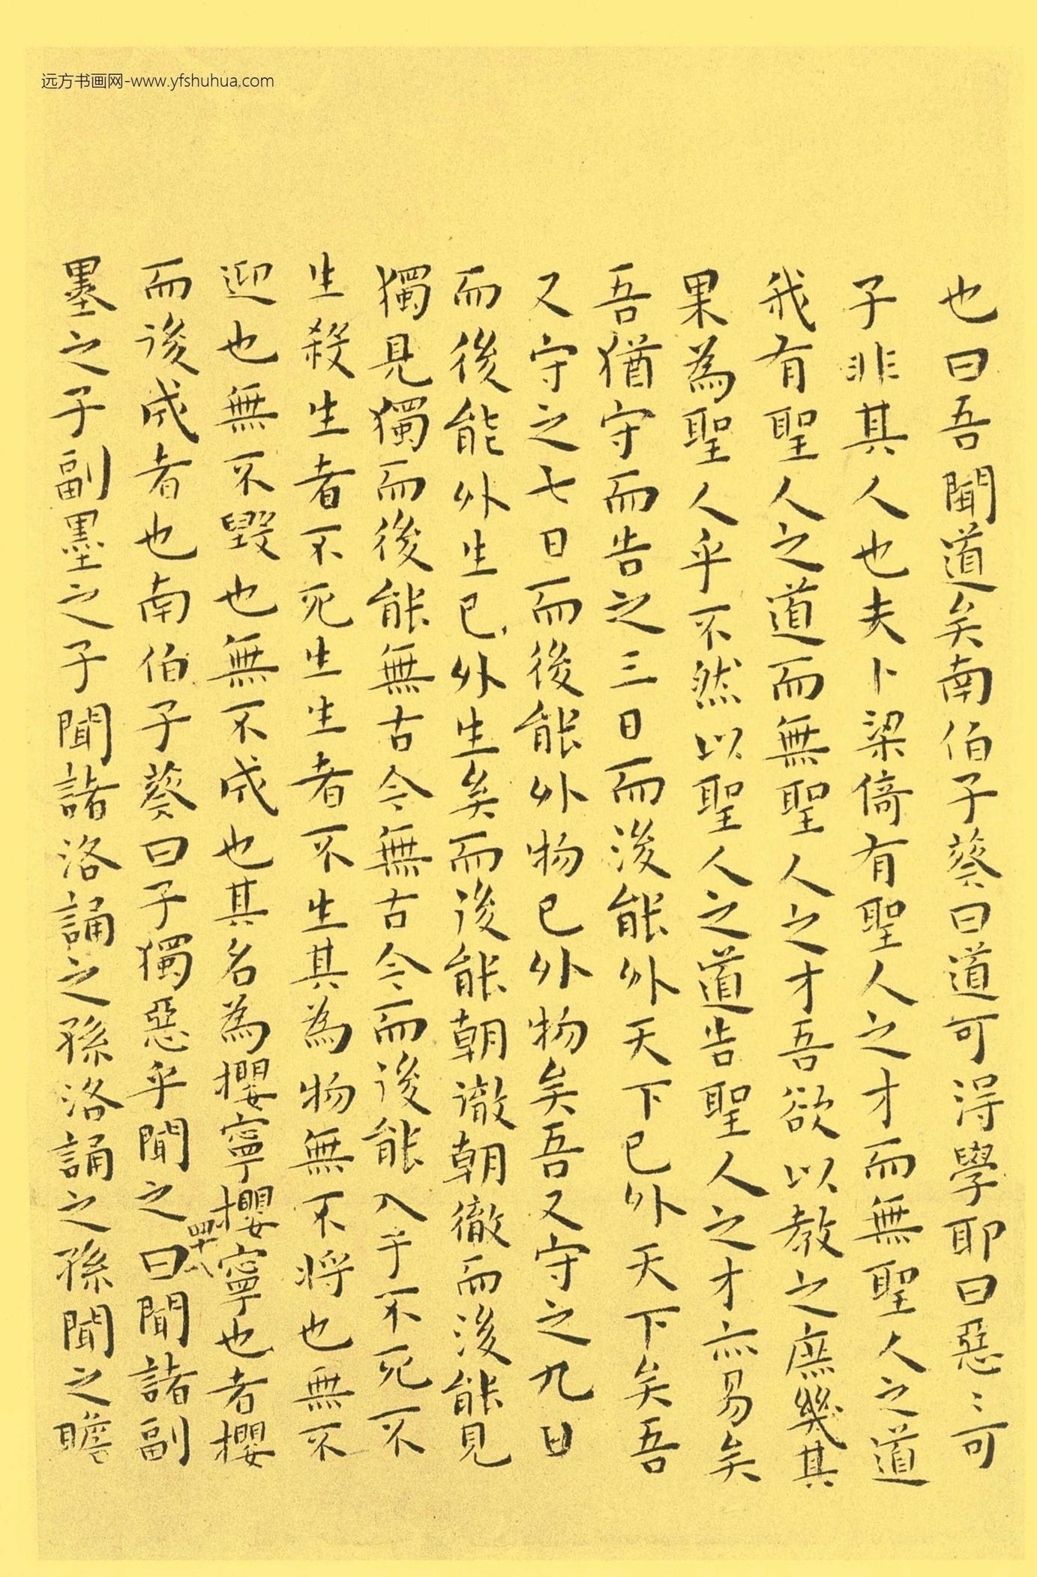 远方书画网-www.yfshuhua.com
也曰吾聞道矣南伯子葵曰道可得學耶曰惡〻可
子非其人也夫卜梁倚有聖人之才而無聖人之道
我有聖人之道而無聖人之才吾欲以教之庶幾其
果為聖人乎不然以聖人之道告聖人之才亦易矣
吾猶守而告之三日而後能外天下已外天下矣吾
又守之七日而後能外物已外物矣吾又守之九日
而後能外生已外生矣而後能朝徹朝徹而後能見
獨見獨而後能無古今無古今而後能入乎不死不
生殺生者不死生生者不生其為物無不将也無不
迎也無不毀也無不成也其名為攖寧攖寧也者攖
而後成者也南伯子葵曰子獨惡乎聞之曰聞諸副
墨之子副墨之子聞諸洛誦之孫洛誦之孫聞之瞻
四十八